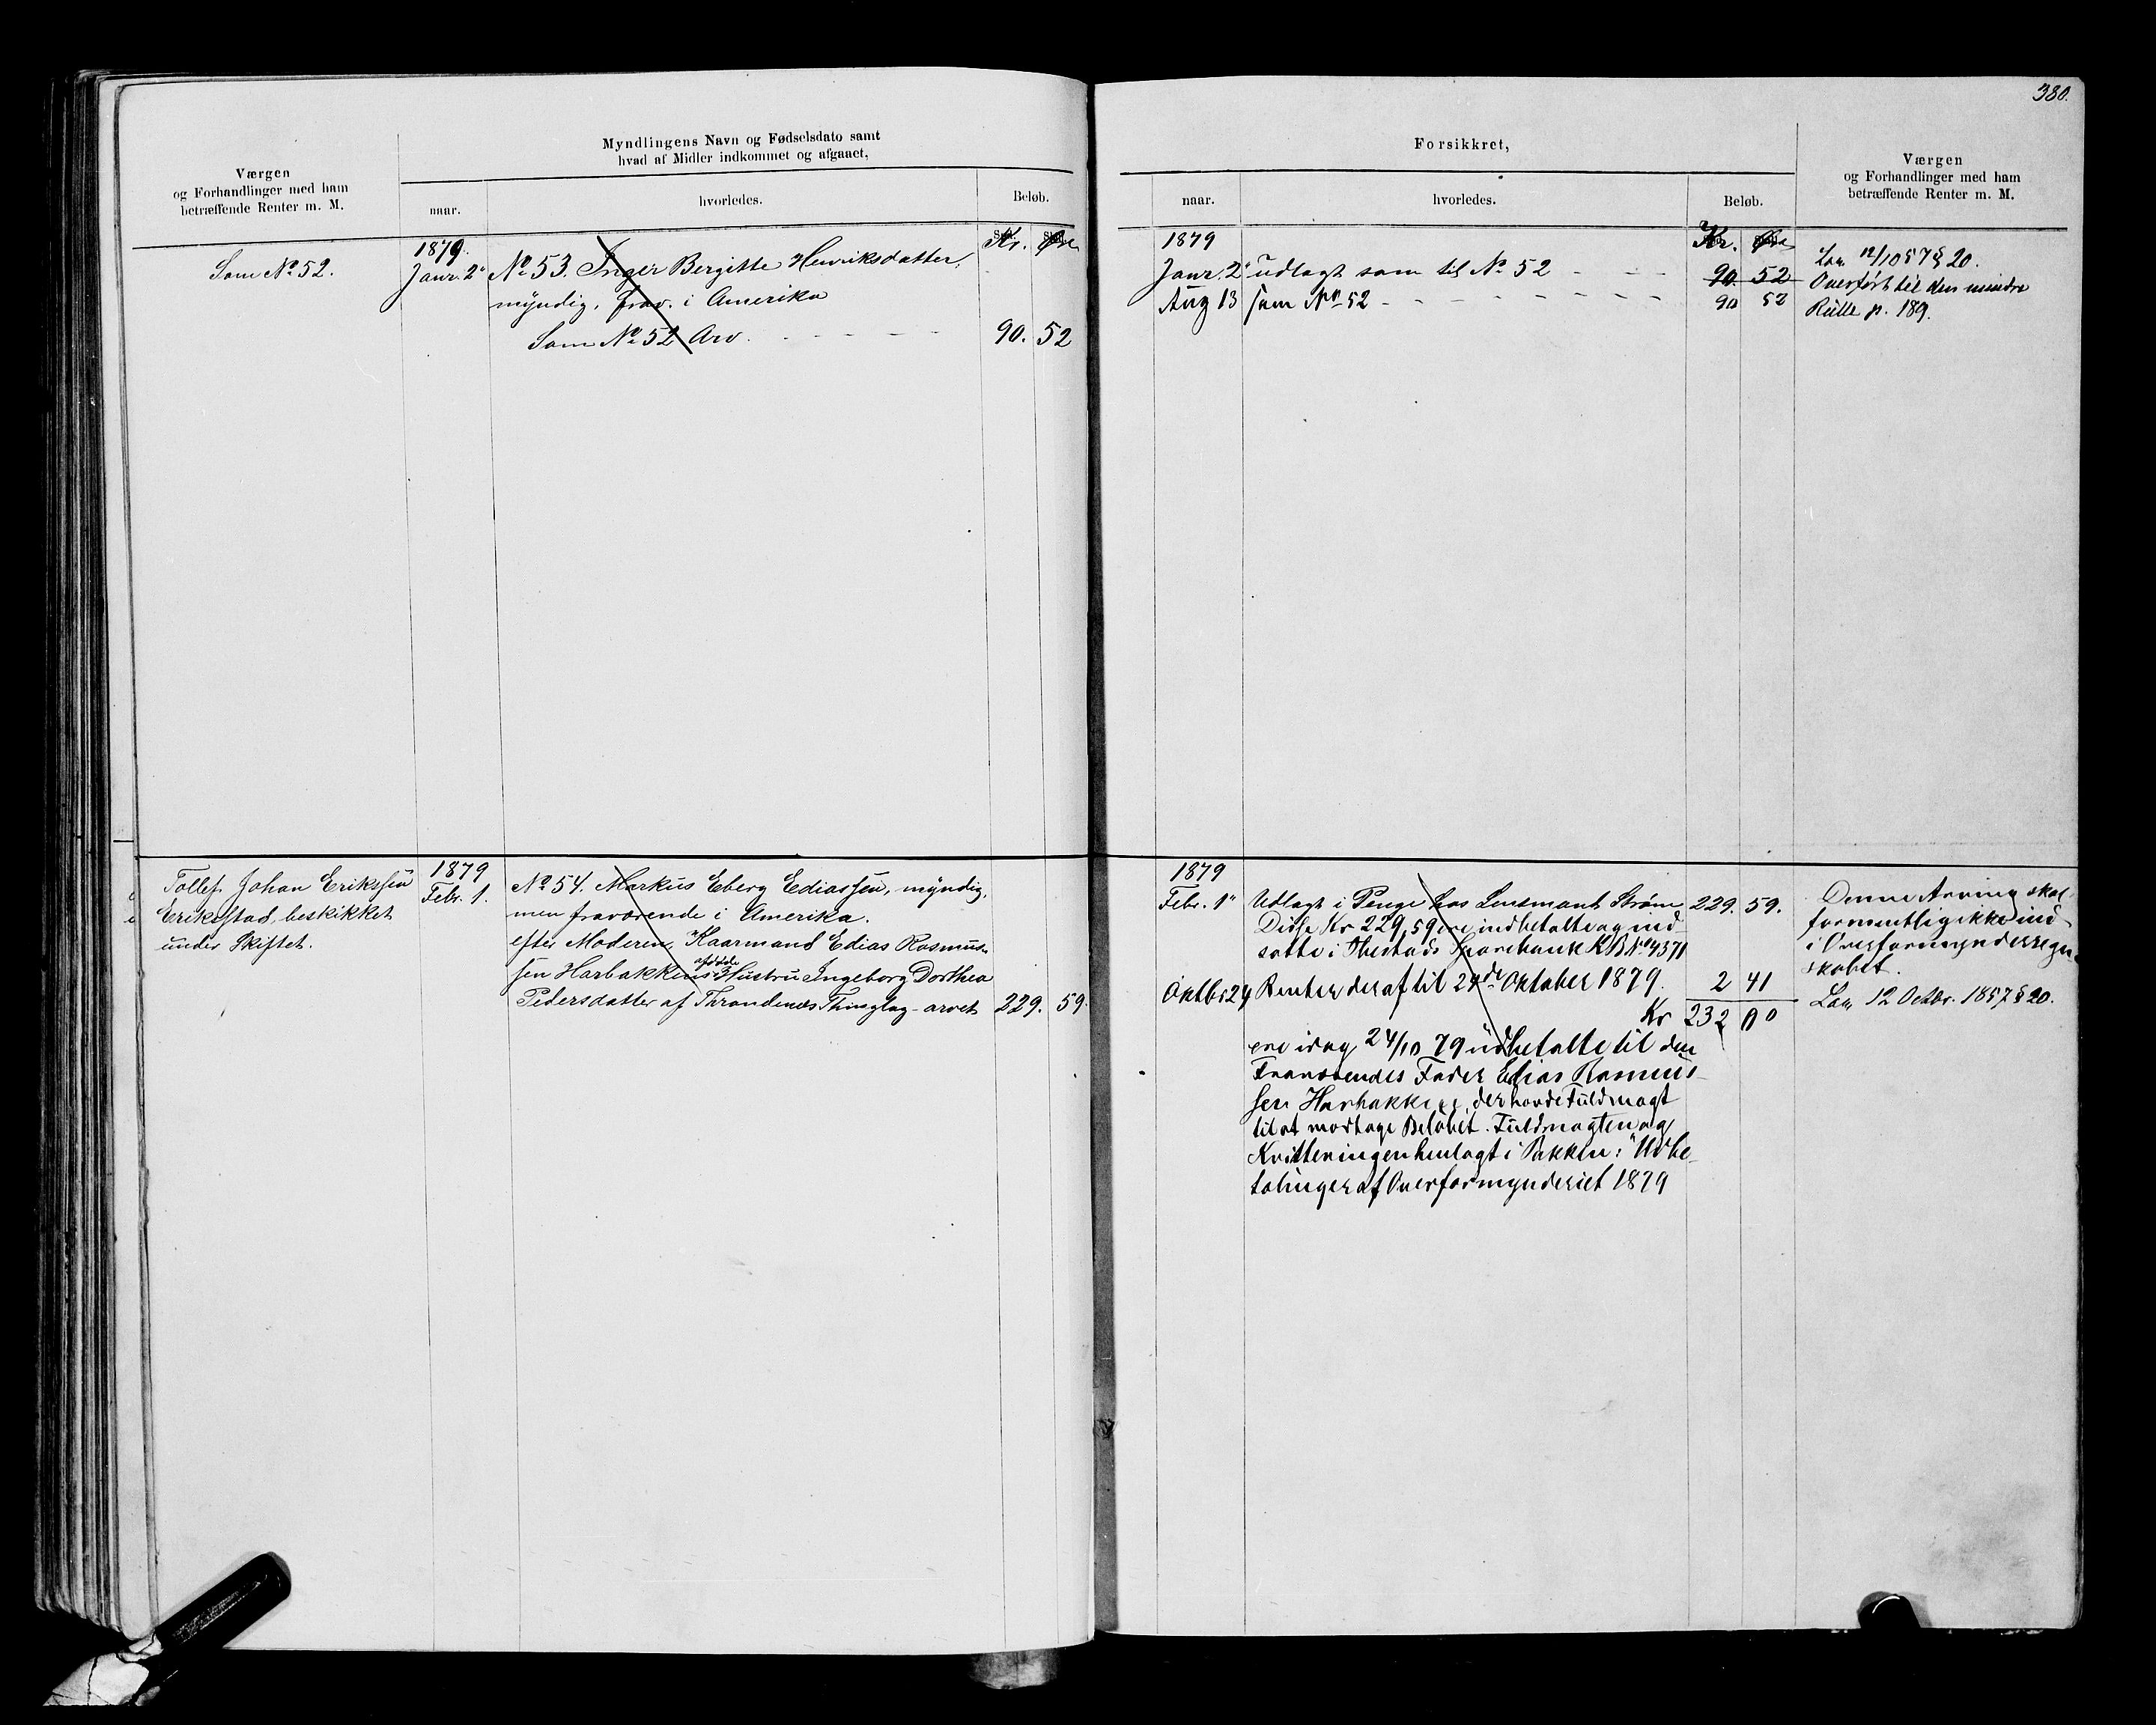 380.
Værgen
og Forhandlinger med ham
betræffende Renter m. M.
Myndlingens Navn og Fødselsdato samt
hvad af Midler indkommet og afgaaet,
naar.
hvorledes.
Beløb.
Kr. Øre
Som No 52.
1879.
Janr. 2"
No 53. Inger Bergitte Henriksdatter,
myndig, frav. i Amerika
Som No 52 Arv. - - - - - 90. 52
Tollef Johan Erikssen
Erikstad, beskikket
under Skiftet.
1879
Febr. 1.
No 54. Markus Eberg Ediassen, myndig,
men fraværende i Amerika.
efter Moderen, Kaarmand Edias Rasmus-
sen Harbakkens afdøde Hustru Ingeborg Dorthea
Pedersdatter af Throndenæs Thinglag - arvet 229. 59
Forsikkret,
naar.
hvorledes.
Beløb.
Værgen
og Forhandlinger med ham
betræffende Renter m. M.
Kr. Øre
1879
Janr. 2" udlagt som til No 52 - - - 90. 52
Aug 13 som No 52 - - - - - - - - 90 52
Lov 12/10 57 § 20.
Overført til den mindre
Rulle p. 189.
1879
Febr. 1" Udlagt i Penge hos Lensmand Strøm 229. 59.
Disse Kr 229,59 ere indbetalte og ind-
satte i Ibestads Sparebank K B No 4371
Oktbr 24 Renter deraf til 24de Oktober 1879. 2 41
Kr 232 00
ere idag 24/10 79 udbetalte til den
Fraværendes Fader Edias Rasmus-
sen Harbakken, der havde Fuldmagt
til at modtage Beløbet. Fuldmagten og
Kvitteringen henlagt i Pakken: "Udbe-
talinger af Overformynderiet 1879
Denne Arving skal
formentlig ikke ind
i Overformynderregn-
skabet.
Lov 12 Octbr. 1857 § 20.